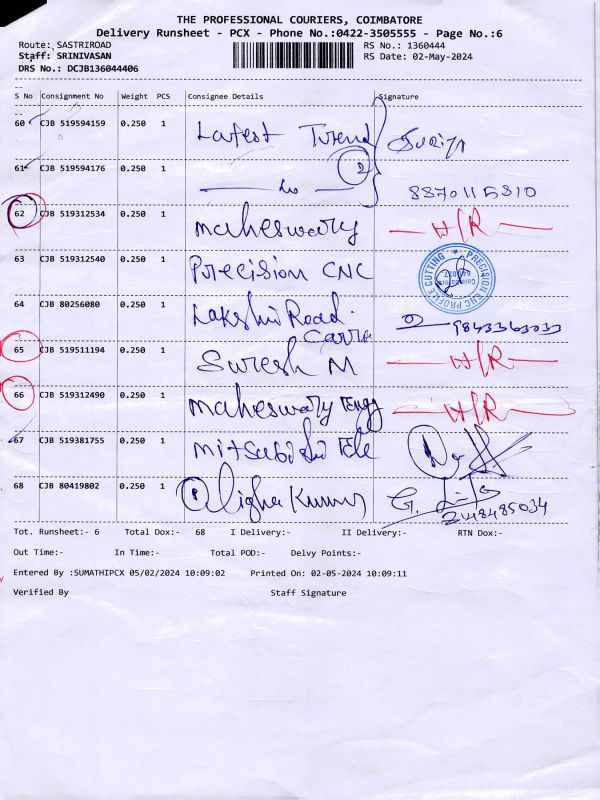 THE PROFESSIONAL COURIERS, COIMBATORE
Delivery Runsheet - PCX - Phone No.:0422-3505555 - Page No.:6
Route: SASTRIROAD RS No.: 1360444
Staff: SRINIVASAN RS Date: 02-May-2024
DRS No.: DCJB136044406
S No Consignment No Weight PCS Consignee Details Signature
60 CJB 519594159 0.250 1 Latest Trend Suriya
61 CJB 519594176 0.250 1 do 2 8870115810
62 CJB 519312534 0.250 1 Maheswary H/R
63 CJB 519312540 0.250 1 Precision CNC PRECISION CNC PROFILE CUTTING
64 CJB 80256080 0.250 1 Lakshi Road Carre
65 CJB 519511194 0.250 1 Suresh M H/R
66 CJB 519312490 0.250 1 Maheswary Engg H/R
67 CJB 519381755 0.250 1 Mitsubishi Ele
68 CJB 80419802 0.250 1 G.
Tot. Runsheet:- 6 Total Dox:- 68 I Delivery:- II Delivery:- RTN Dox:-
Out Time:- In Time:- Total POD:- Delvy Points:-
Entered By :SUMATHIPCX 05/02/2024 10:09:02 Printed On: 02-05-2024 10:09:11
Verified By Staff Signature